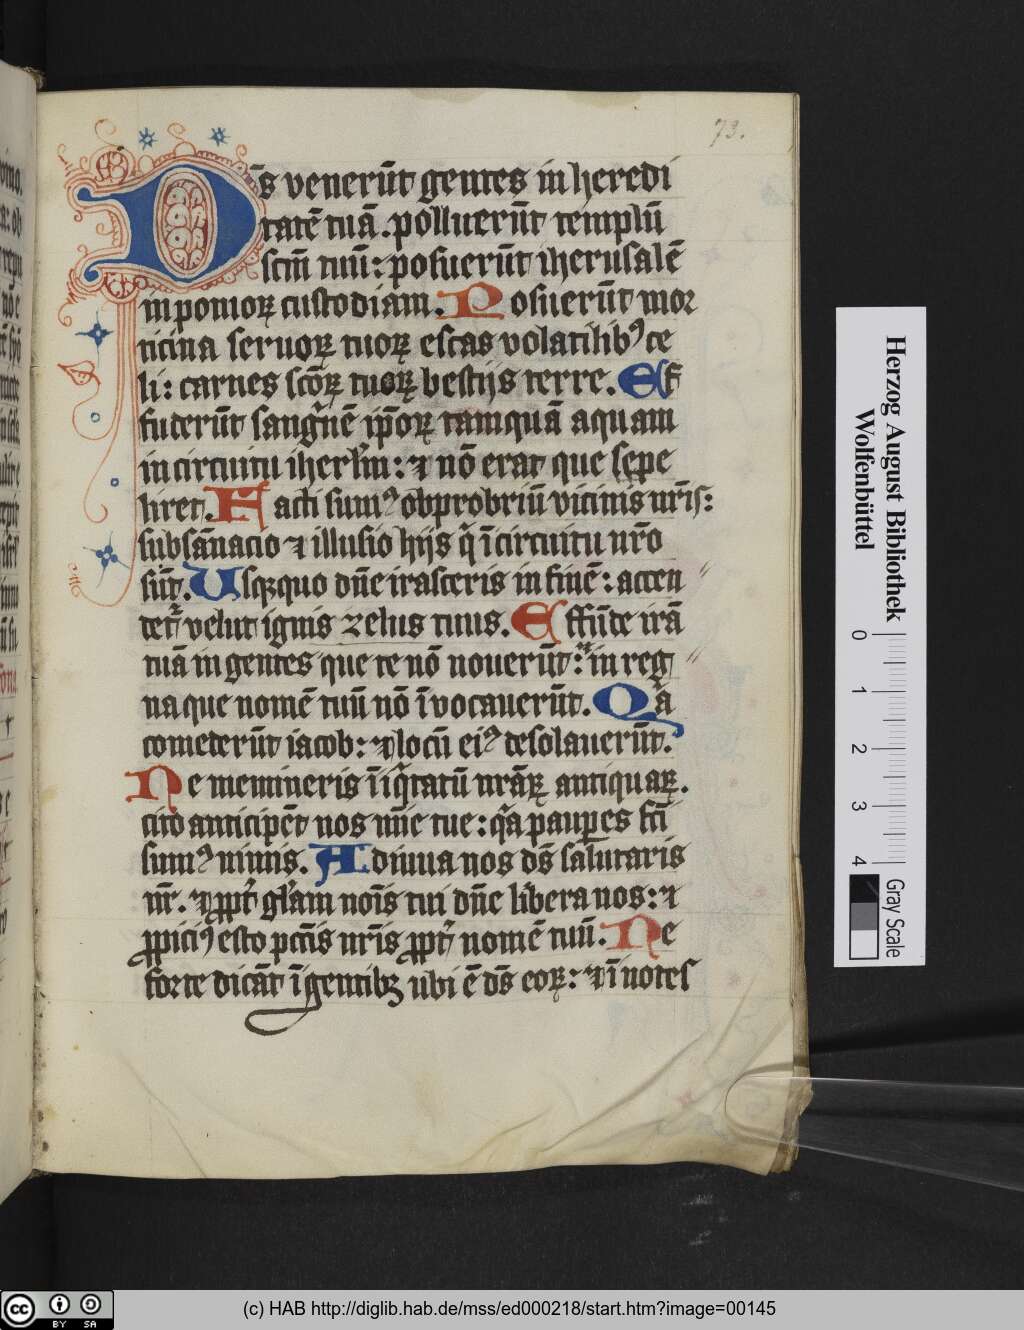 73.
Ds̄ venerūt gentes in heredi
tatē tuā. polluerūt templū
sctm̄ tuū: posuerūt iherusalē
in pomoꝝ custodiam. Posuerūt mor
ticina seruoꝝ tuoꝝ escas volatilibꝰ ce
li: carnes scōꝝ tuoꝝ bestijs terre. Ef
fuderūt sangͥnē ip̄oꝝ tamquā aquam
in circuitu iherlm̄: ⁊ nō erat que sepe
liret. Facti sumꝰ obprobriū vicinis nr̄is:
subsānacio ⁊ illusio hijs q̄ ī circuitu nr̄o
sūt. Usqꝫquo dn̄e irasceris in finē: accen
det᷑ velut ignis zelus tuus. Effūde irā
tuā in gentes que te nō nouerūt: ⁊ in reg
na que nomē tuū nō īvocauerūt. Qͥa
comederūt iacob: ⁊ locū eiꝰ desolauerūt.
Ne memineris īiqͥtatū nr̄aꝝ antiquaꝝ.
cito anticipēt nos mīe tue: qͥa paupes fc̄i
sumꝰ nimis. Adiuua nos ds̄ salutaris
nr̄. ⁊ ꝓpt᷑ glͥam noīs tui dn̄e libera nos: ⁊
ꝓpiciꝰ esto pctīs nr̄is ꝓpt᷑ nomē tuū. Ne
forte dicāt ī gentibꝫ ubi ē ds̄ eoꝝ: ⁊ ī notes
Herzog August Bibliothek
Wolfenbüttel
0 1 2 3 4
Gray Scale
cc BY SA
(c) HAB http://diglib.hab.de/mss/ed000218/start.htm?image=00145